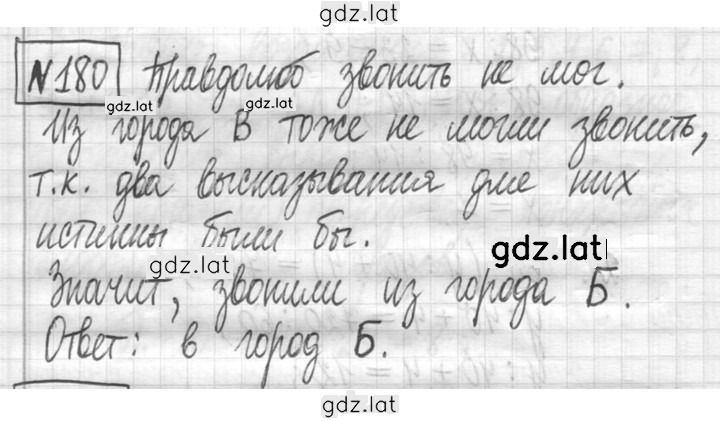 gdz.lat
№180 Правдолюб звонить не мог.
gdz.lat gdz.lat
Из города В тоже не могли звонить,
т.к. два высказывания для них
истинны были бы.
gdz.lat gdz.lat
Значит, звонили из города Б.
Ответ: в город Б.
gdz.lat